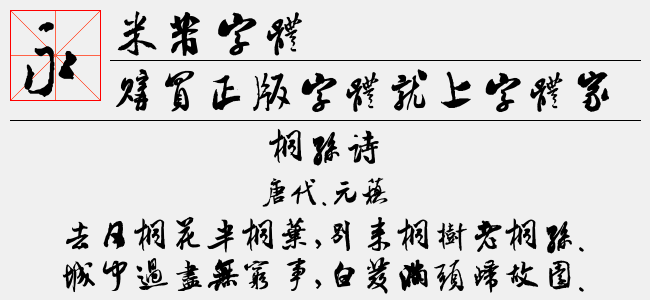 永
米芾字體
購買正版字體就上字體家
桐孫詩
唐代、元稹
去日桐花半桐葉，別來桐樹老桐孫．
城中過盡無窮事，白髮滿頭歸故園．